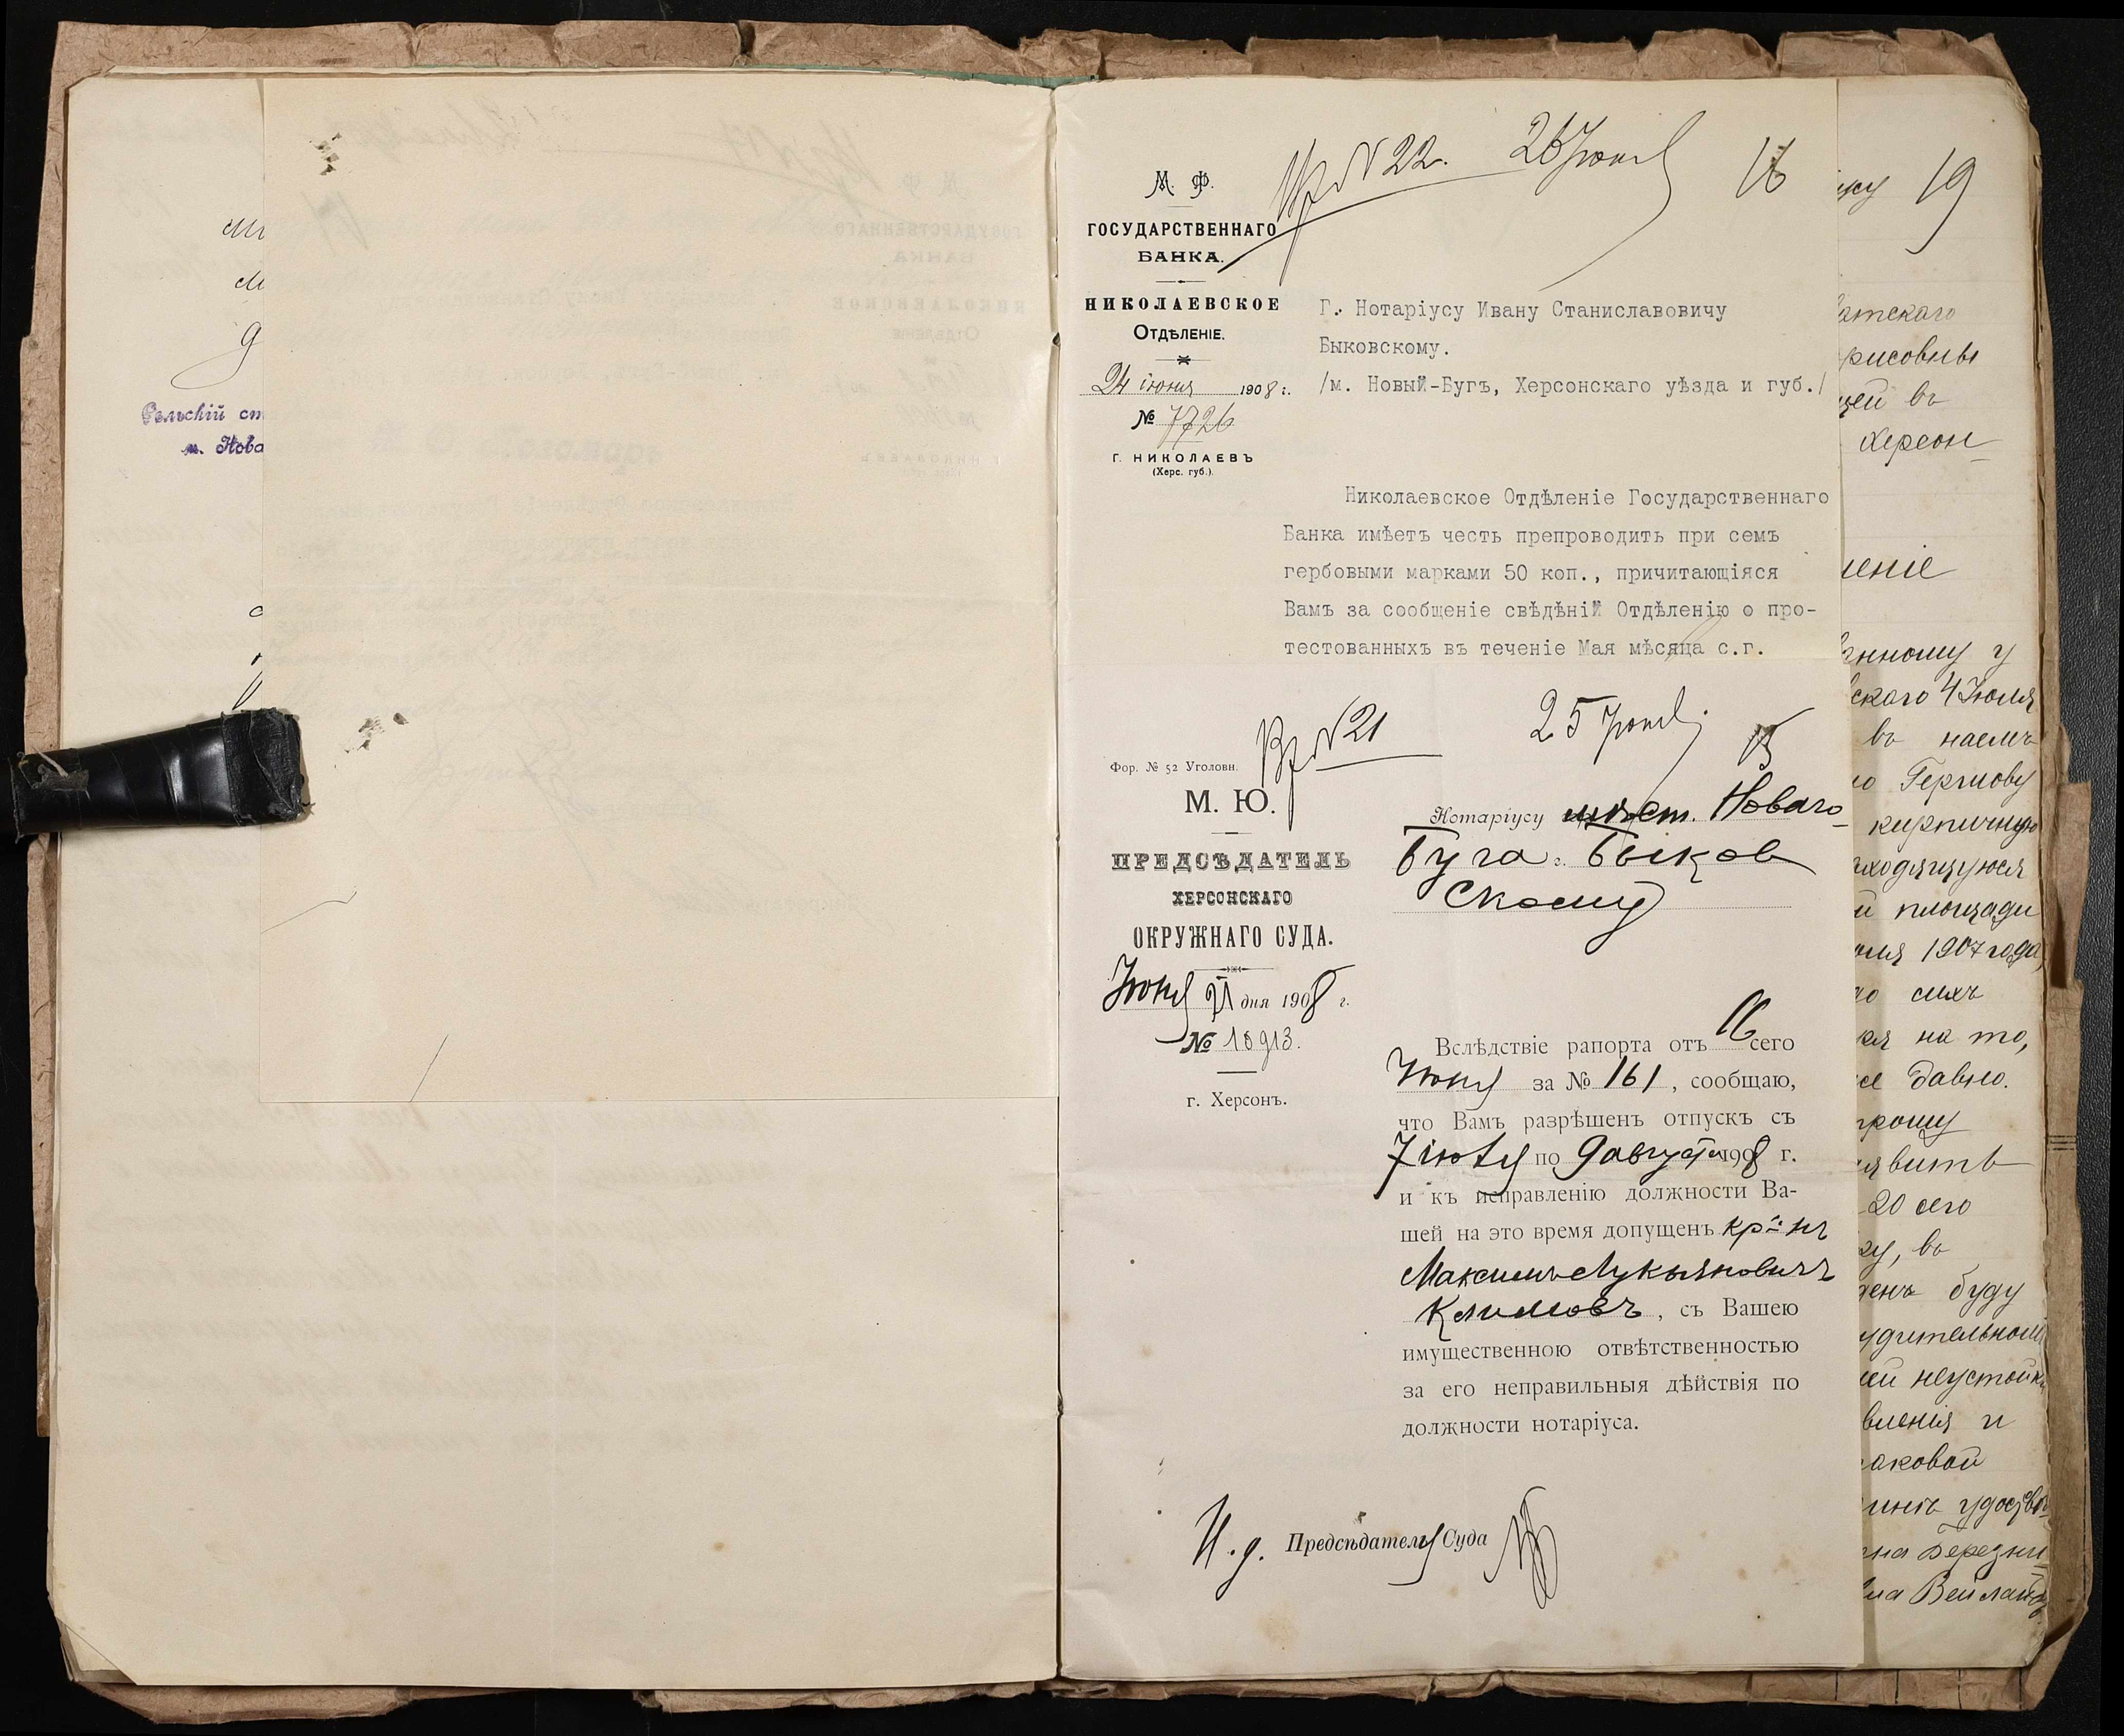 Сельскій ст
м. Нова
Вх № 22. 26 Іюня
16
М. Ф.
ГОСУДАРСТВЕННАГО
БАНКА.
НИКОЛАЕВСКОЕ
ОТДѢЛЕНІЕ.
24 іюня 1908 г.
№ 7726
Г. НИКОЛАЕВЪ
(Херс. губ.).
Г. Нотаріусу Ивану Станиславовичу
Быковскому.
/м. Новый-Бугъ, Херсонскаго уѣзда и губ./
Николаевское Отдѣленіе Государственнаго
Банка имѣетъ честь препроводить при семъ
гербовыми марками 50 коп., причитающіяся
Вамъ за сообщеніе свѣдѣній Отдѣленію о про-
тестованныхъ въ теченіе Мая мѣсяца с.г.
Вх № 21
25 Іюня
15
Фор. № 52 Уголовн.
М. Ю.
ПРЕДСѢДАТЕЛЬ
ХЕРСОНСКАГО
ОКРУЖНАГО СУДА.
Іюня 21 дня 1908 г.
№ 10913.
г. Херсонъ.
Нотаріусу мѣст. Новаго
Буга г. Быков
скому
Вслѣдствіе рапорта отъ 16 сего
Іюня за № 161, сообщаю,
что Вамъ разрѣшенъ отпускъ съ
7 іюля по 9 августа 1908 г.
и къ исправленію должности Ва-
шей на это время допущенъ кр-нъ
Максимъ Лукьяновичъ
Климовъ, съ Вашею
имущественною отвѣтственностью
за его неправильныя дѣйствія по
должности нотаріуса.
И. д. Предсѣдателя Суда
19
атскаго
рисовны
щей въ
Херсон-
еніе
анному у
скаго 4 Іюля
въ наемъ
Гершову
кирпичную
аходящуюся
й площади
юля 1907 года,
до сихъ
ся на то,
давно.
прошу
явить
20 сего
въ
день буду
удительной
ей неустойк
вленія и
аковой
на Березни-
на Вейланд